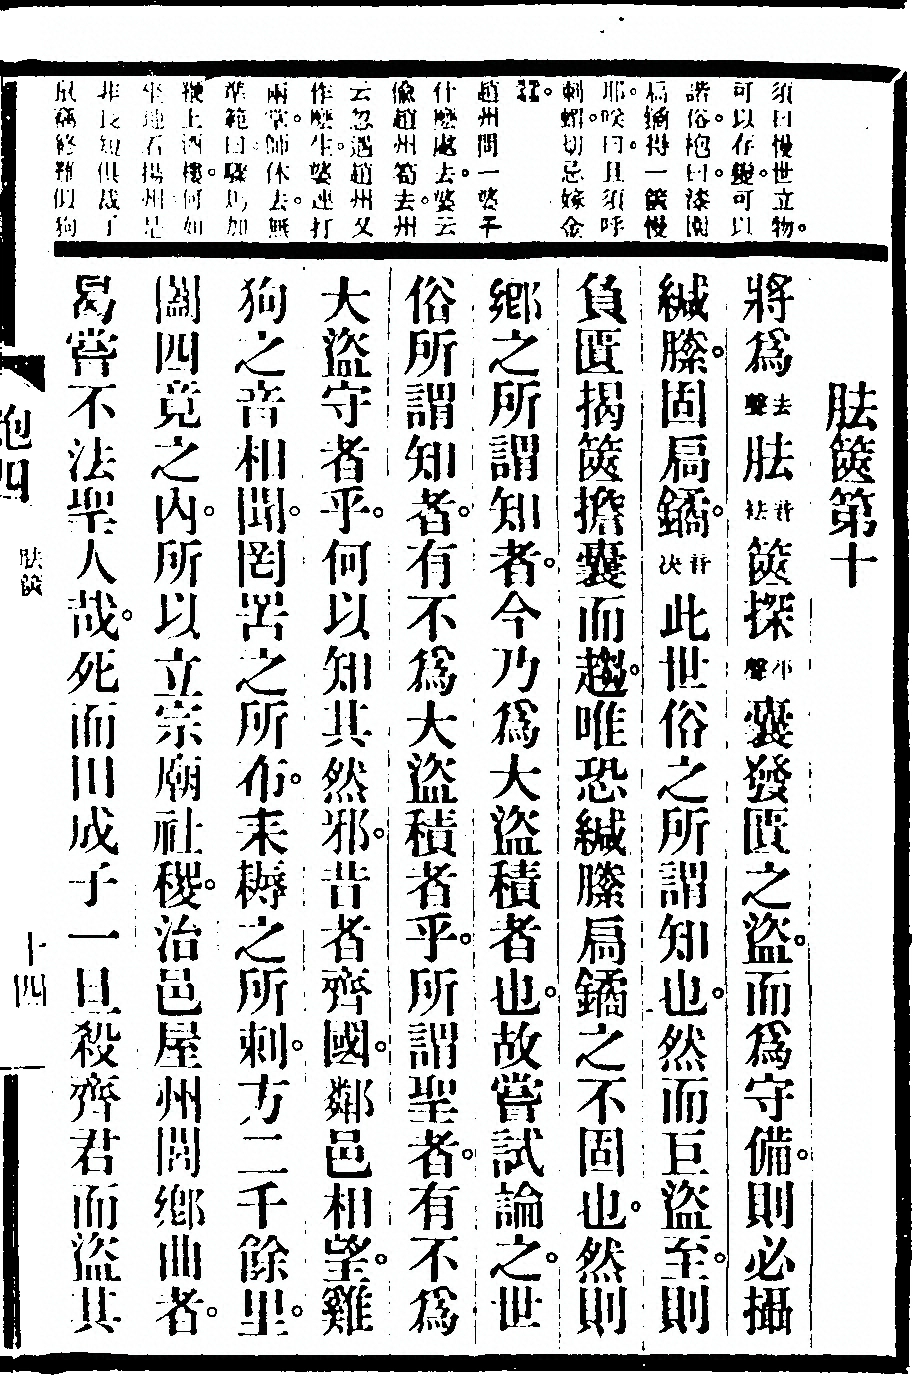 須曰慢世立物。
可以存可以
諧俗。枹曰。漆園
扃鐍得一篋慢
耶。咲曰且須呼
刺蝟。切忌嫁金
趙州問一婆子
什麼處去。婆云
偸趙州筍去。州
云忽遇趙州又
作麼生。婆連打
兩掌。師休去。無
準範曰。驢馬加
鞭上酒樓。何如
坐地看揚州是
非長短俱裁了
終難似狗
胠篋第十
將爲去聲胠音祛篋探平聲囊發匱之盜。而爲守備。則必攝
緘縢。固扃鐍。音决此世俗之所謂知也。然而巨盜至。則
負匱揭篋擔囊而趨。唯恐緘縢扃鐍之不固也。然則
鄉之所謂知者。今乃爲大盜積者也。故嘗試論之。世
俗所謂知者。有不爲大盜積者乎。所謂聖者。有不爲
大盜守者乎。何以知其然邪。昔者齊國。鄰邑相望。雞
狗之音相聞。罔罟之所布。耒耨之所刺。方二千餘里。
闔四竟之內。所以立宗廟社稷。治邑屋州閭鄉曲者。
曷嘗不法聖人哉。死而田成子一旦殺齊君而盜其
炮四
胠篋
十四